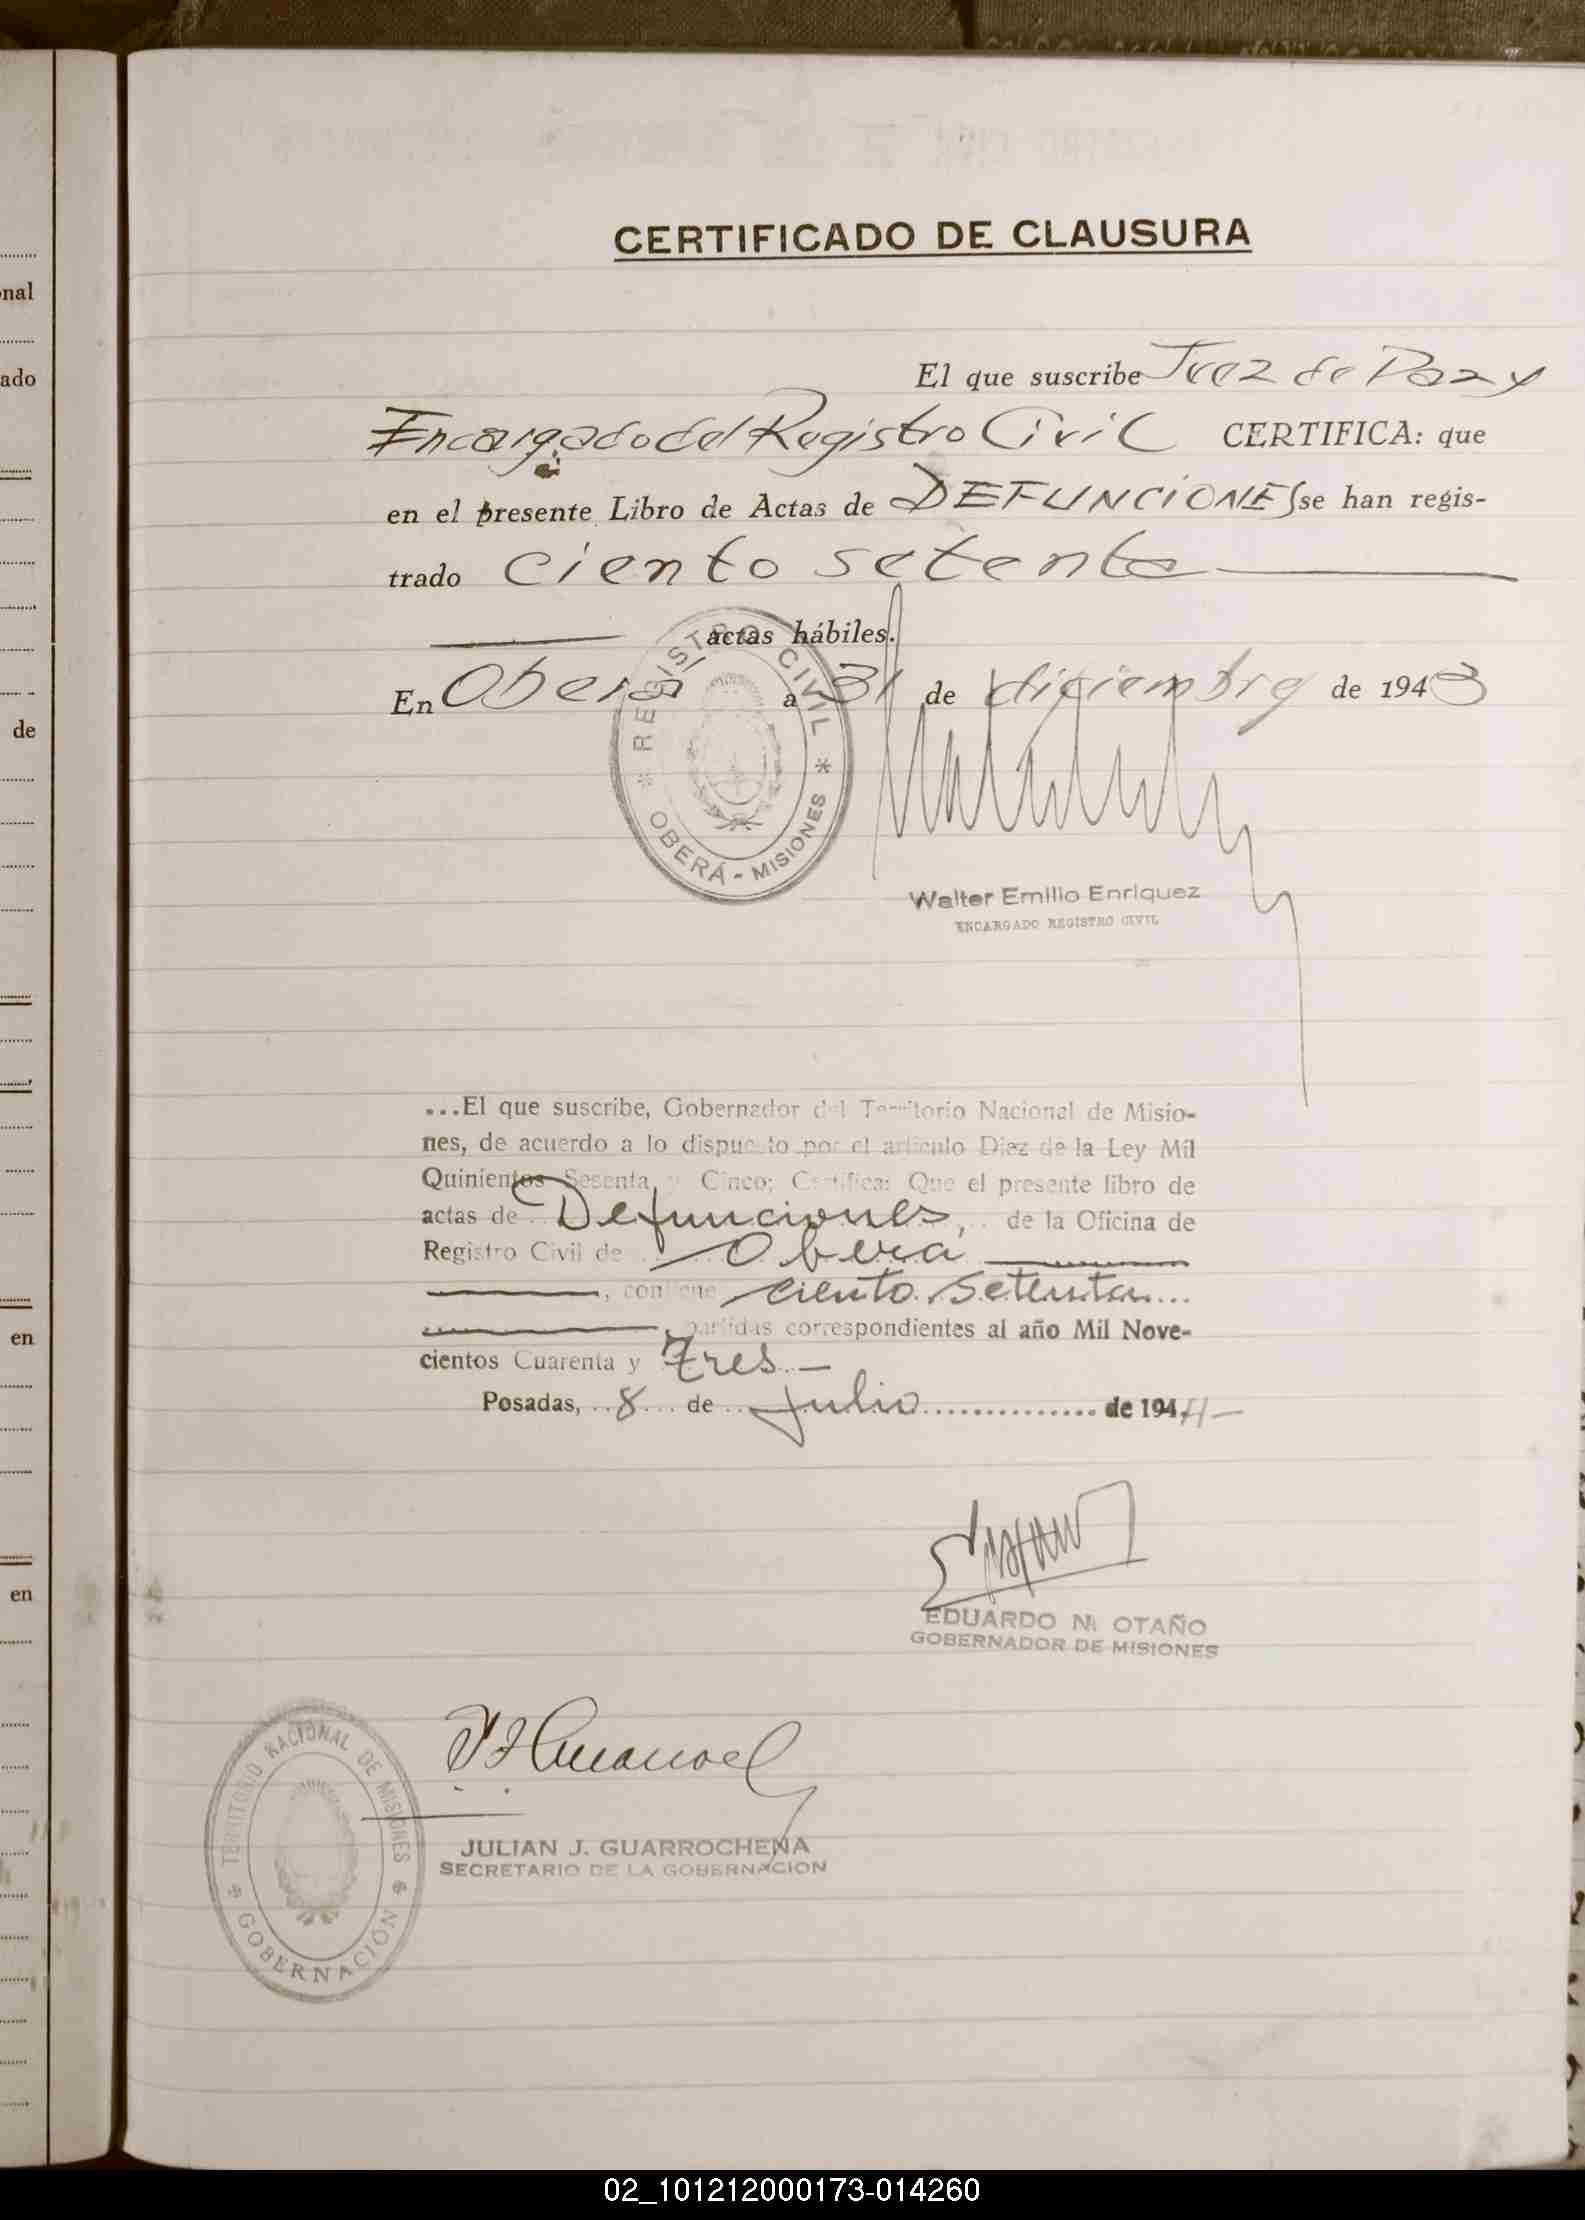 CERTIFICADO DE CLAUSURA
El que suscribe Juez de Paz y
Encargado del Registro Civil CERTIFICA: que
en el presente Libro de Actas de DEFUNCIONES se han regis-
trado ciento setenta
actas hábiles.
En Oberá a 31 de diciembre de 1943
REGISTRO CIVIL
OBERÁ - MISIONES
Walter Emilio Enriquez
ENCARGADO REGISTRO CIVIL
...El que suscribe, Gobernador del Territorio Nacional de Misio-
nes, de acuerdo a lo dispuesto por el artículo Diez de la Ley Mil
Quinientos Sesenta y Cinco; Certifica: Que el presente libro de
actas de Defunciones, de la Oficina de
Registro Civil de Oberá
, contiene ciento setenta...
, partidas correspondientes al año Mil Nove-
cientos Cuarenta y Tres.-
Posadas, 8 de Julio de 1944-
EDUARDO N. OTAÑO
GOBERNADOR DE MISIONES
TERRITORIO NACIONAL DE MISIONES
GOBERNACIÓN
JULIAN J. GUARROCHENA
SECRETARIO DE LA GOBERNACION
onal
ado
de
en
en
02_101212000173-014260